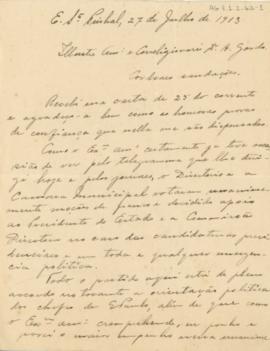 AG 1.1.2.62-1
E. Sto Pinhal, 27 de Julho de 1913
Illustre Amo e Correligionario Dr. A. Gordo.
Cordeaes saudações.
Recebi sua carta de 25 do corrente
e agradeço-a bem como as honrosas provas
de confiança que nella me são dispensadas
Como o Exmo amo certamente já teve occa-
sião de ver pelo telegramma que lhe diri-
gi hoje e pelos jornaes, o Directorio e a
Camara Municipal votaram unanime-
mente moções de franco e decidido apoio
ao Presidente do Estado e a Commissão
Directora no caso das candidaturas presi-
denciaes e em toda e qualquer emergen-
cia politica.
Todo o partido aqui está de pleno
accordo no tocante a orientação politica
dos chefes de S. Paulo, alem de que como
o Exmo amo comprehende, eu ponho e
porei o maior empenho nessa